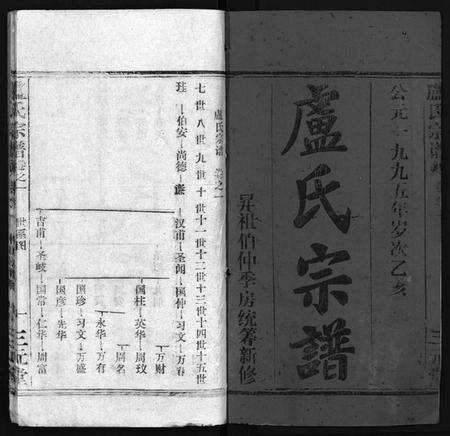 公元一九九五年岁次乙亥
盧氏宗譜
昇祖伯仲季房统筹新修
盧氏宗譜
盧氏宗谱 卷之一
七世八世九世十世十一世十二世十三世十四世十五世
珪—伯安—尚德—谦—汉甫—圣闻—国仲—习文—万春
万财
国柱—英华—周玟
周名
永华—万有
国珍—习文—万盛
国彦—光华
吉甫—圣岐—国常—仁华—周富
盧氏宗譜卷之一
世系图
三瓦堂